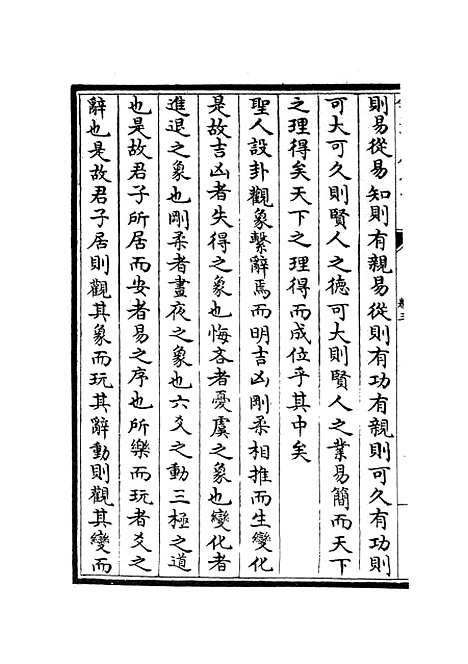 則易從易知則有親易從則有功有親則可久有功則
可大可久則賢人之德可大則賢人之業易簡而天下
之理得矣天下之理得而成位乎其中矣
聖人設卦觀象繫辭焉而明吉凶剛柔相推而生變化
是故吉凶者失得之象也悔吝者憂虞之象也變化者
進退之象也剛柔者晝夜之象也六爻之動三極之道
也是故君子所居而安者易之序也所樂而玩者爻之
辭也是故君子居則觀其象而玩其辭動則觀其變而